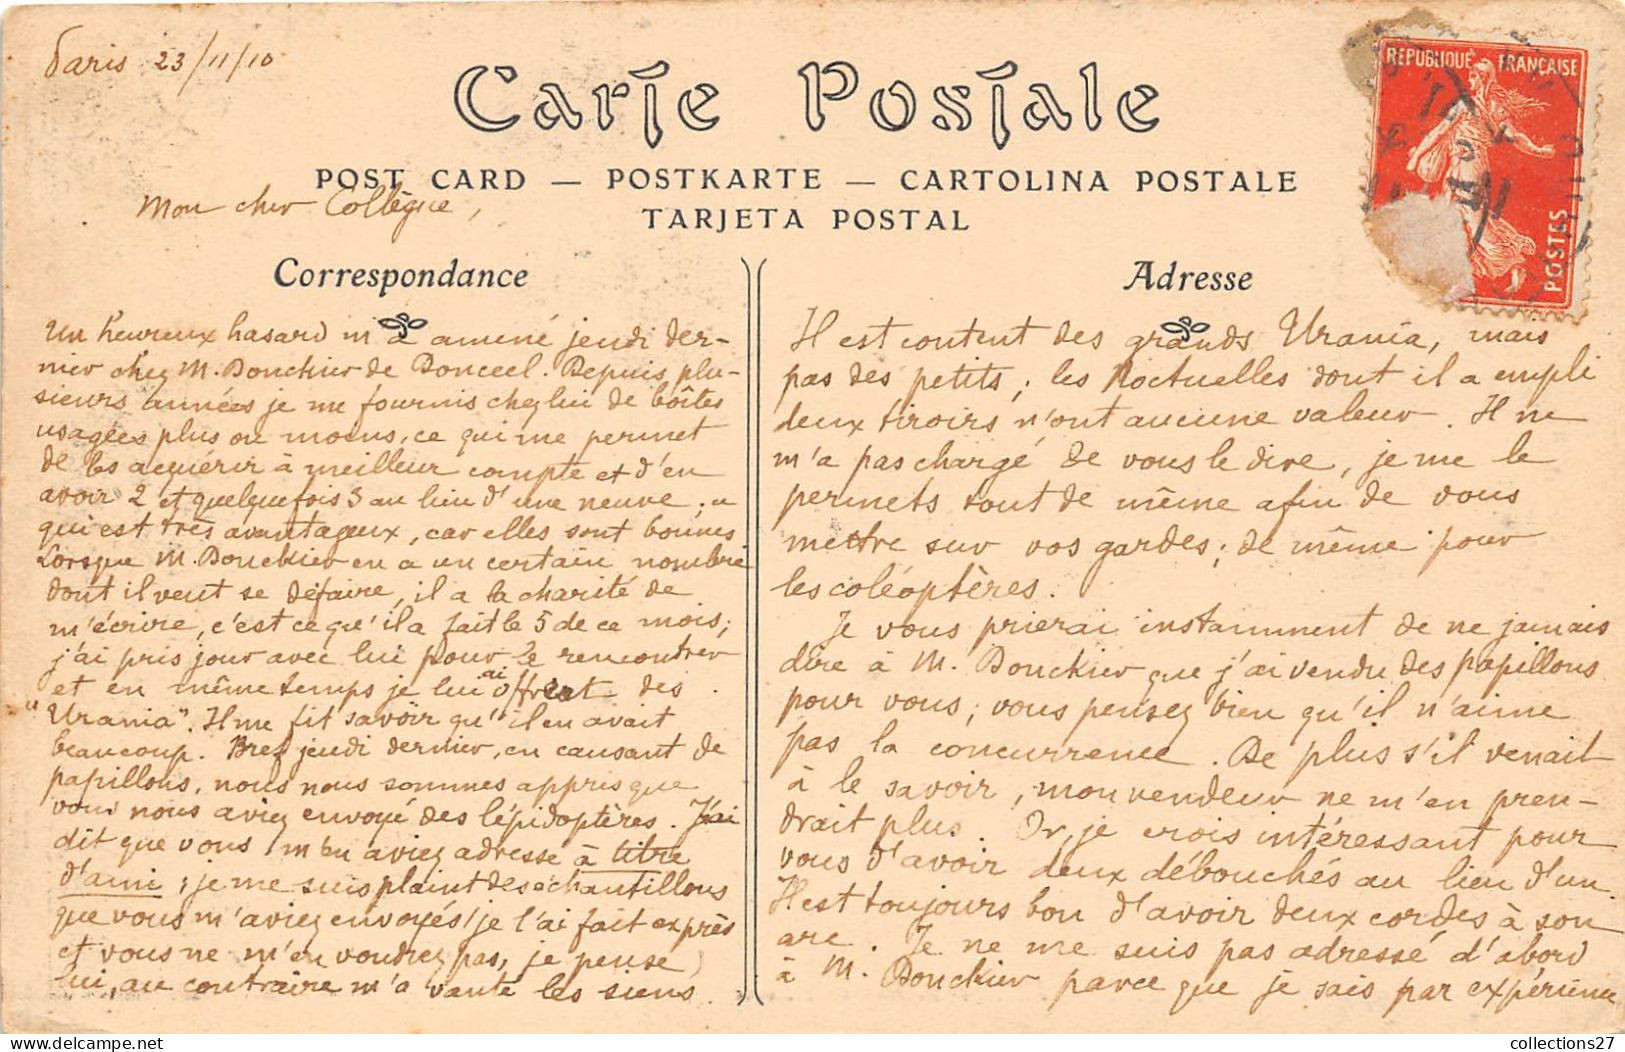 Paris 23/11/10
Carte Postale
POST CARD — POSTKARTE — CARTOLINA POSTALE
TARJETA POSTAL
REPUBLIQUE FRANÇAISE
POSTES
Mon cher Collègue,
Correspondance
Un heureux hasard m'a amené jeudi der-
nier chez M. Donckier de Donceel. Depuis plu-
sieurs années je me fournis chez lui de boîtes
usagées plus ou moins, ce qui me permet
de les acquérir à meilleur compte et d'en
avoir 2 et quelquefois 3 au lieu d'une neuve ;
qui est très avantageux, car elles sont bonnes
Lorsque M. Donckier en a un certain nombre
dont il veut se défaire, il a la charité de
m'écrire, c'est ce qu'il a fait le 5 de ce mois;
j'ai pris jour avec lui pour le rencontrer
et en même temps je lui ai offert des
"Urania". Il me fit savoir qu'il en avait
beaucoup. Bref jeudi dernier, en causant de
papillons, nous nous sommes appris que
vous nous aviez envoyé des lépidoptères. J'ai
dit que vous m'en aviez adressé à titre
d'ami ; je me suis plaint des échantillons
que vous m'aviez envoyés (je l'ai fait exprès
et vous ne m'en voudrez pas, je pense)
lui, au contraire m'a vanté les siens.
Adresse
Il est content des grands Urania, mais
pas des petits ; les Noctuelles dont il a empli
deux tiroirs n'ont aucune valeur. Il ne
m'a pas chargé de vous le dire, je me le
permets tout de même afin de vous
mettre sur vos gardes ; de même pour
les coléoptères.
Je vous prierai instamment de ne jamais
dire à M. Donckier que j'ai vendu des papillons
pour vous ; vous pensez bien qu'il n'aime
pas la concurrence. De plus s'il venait
à le savoir, mon vendeur ne m'en pren-
drait plus. Or, je crois intéressant pour
vous d'avoir deux débouchés au lieu d'un.
Il est toujours bon d'avoir deux cordes à son
arc. Je ne me suis pas adressé d'abord
à M. Donckier parce que je sais par expérience
collections27